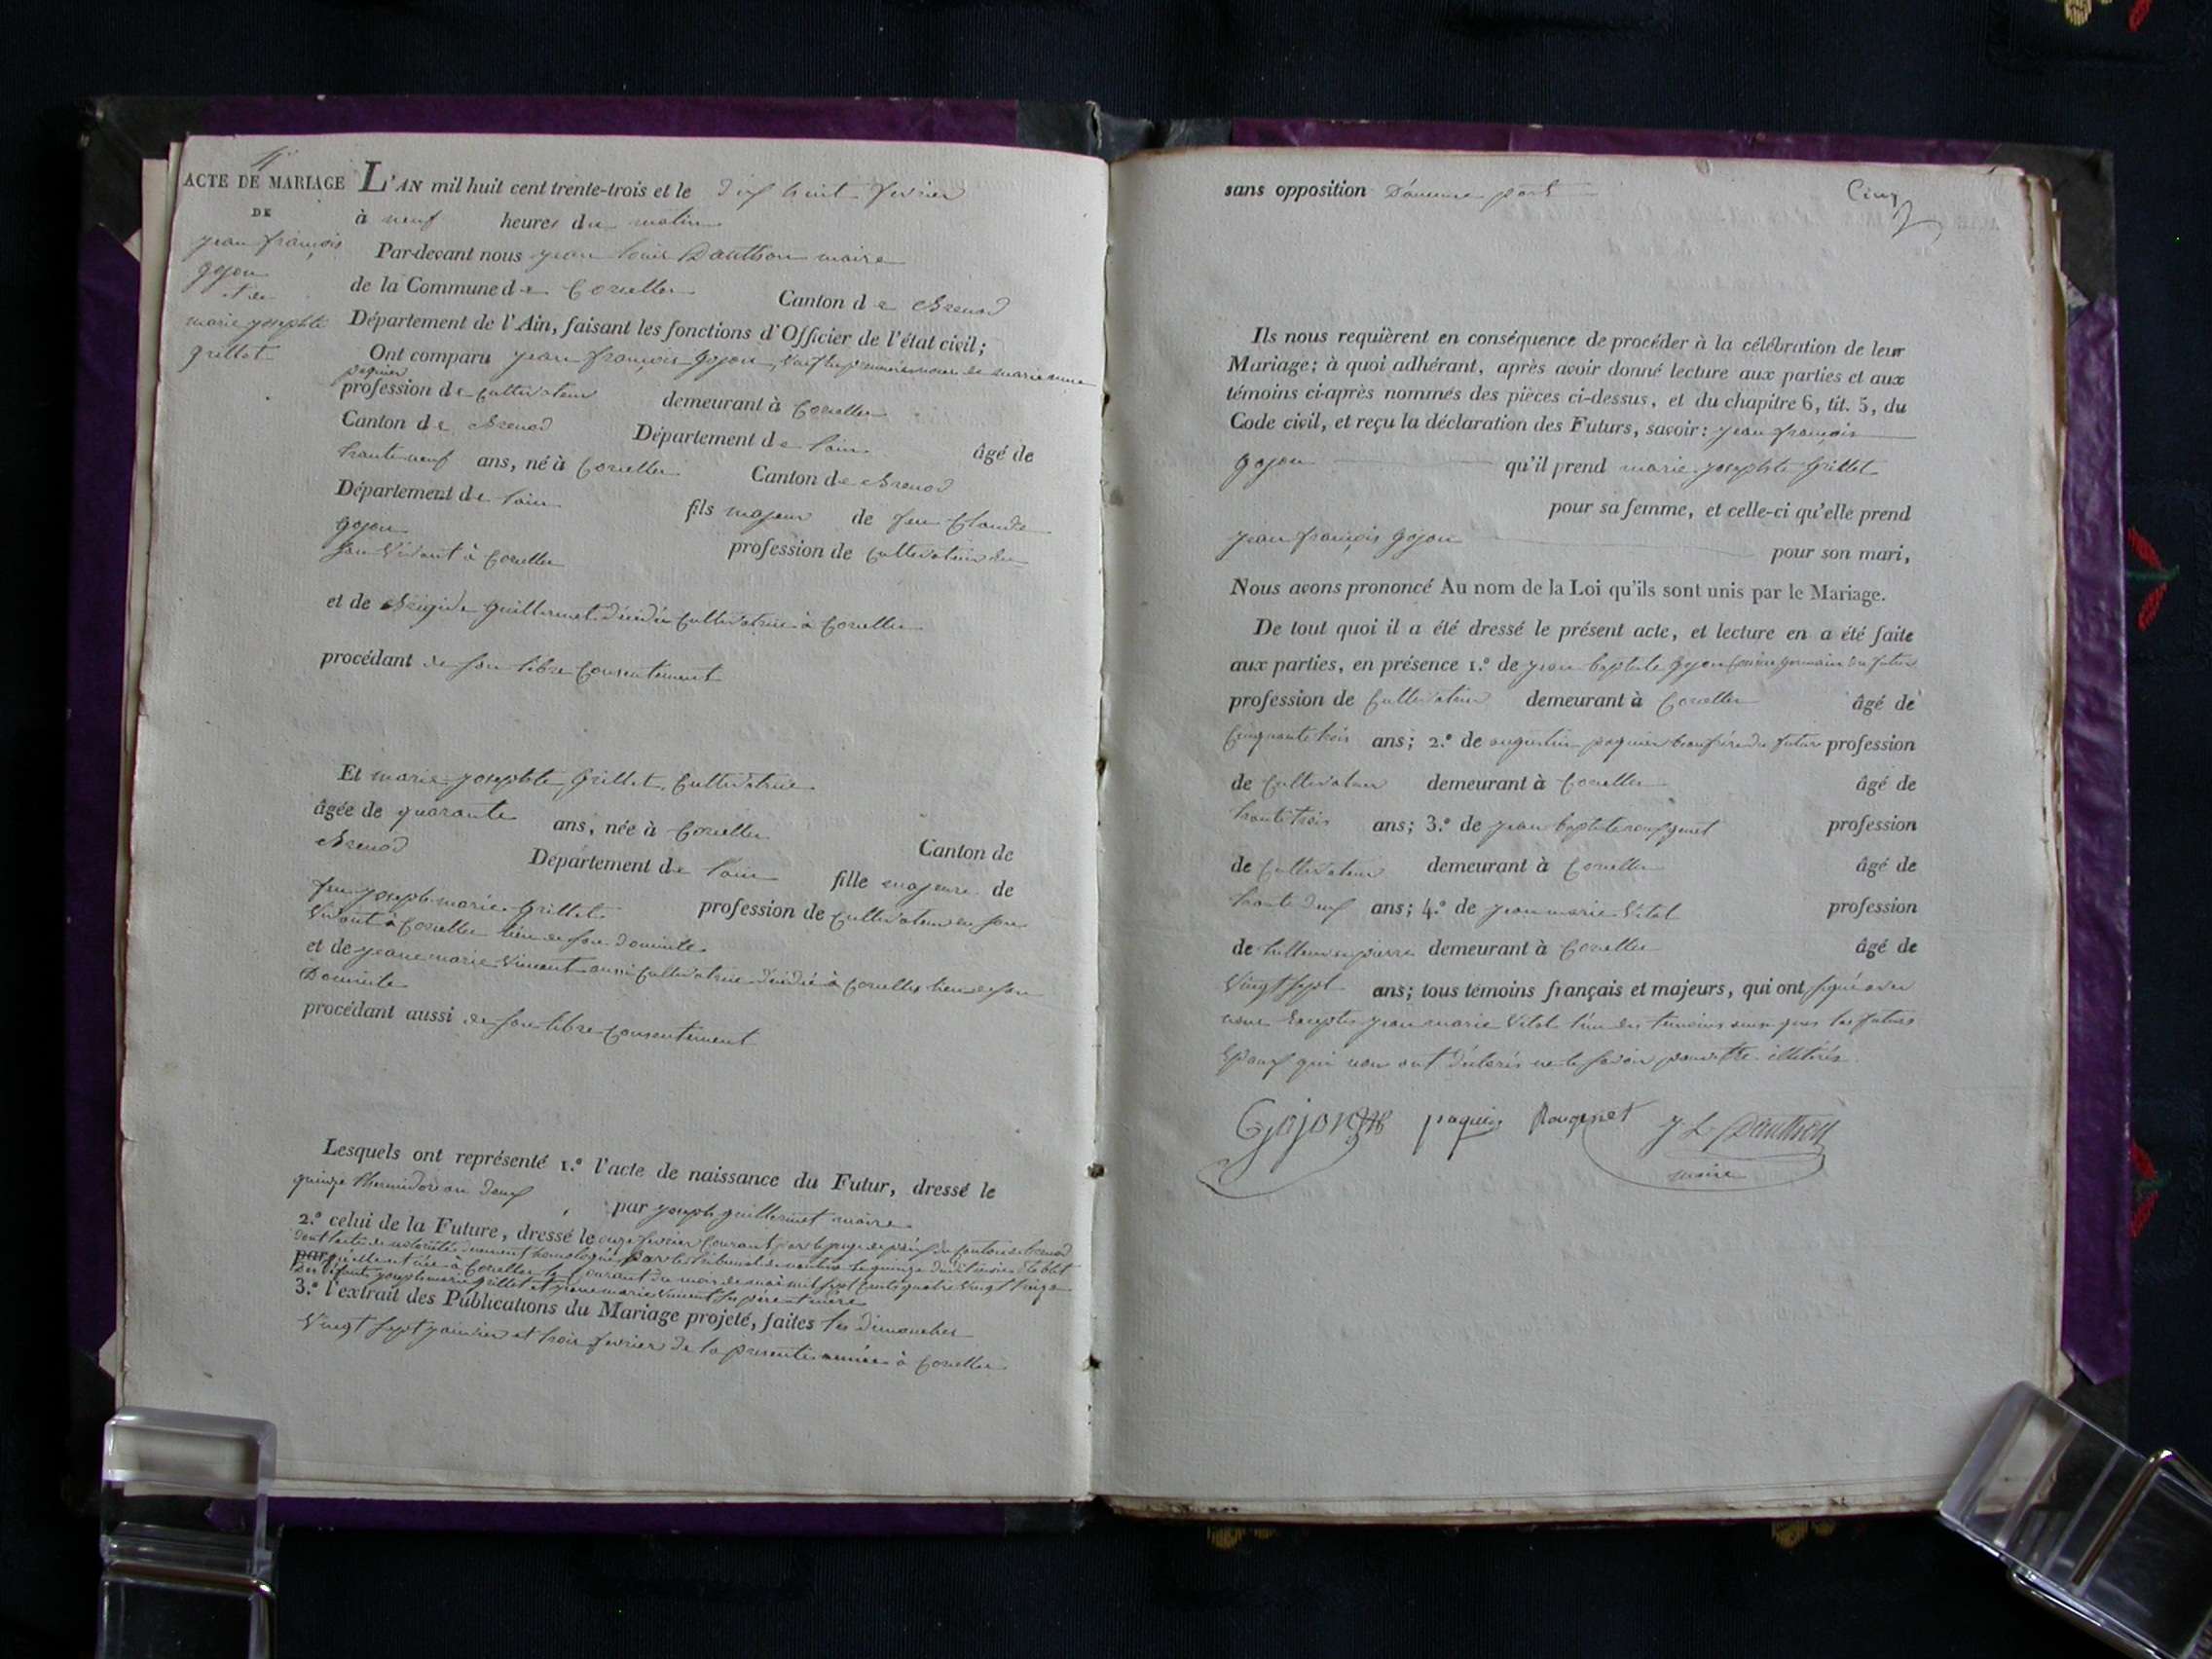 ACTE DE MARIAGE
DE
jean françois
gojon
et de
marie josephte
grillet
L'AN mil huit cent trente-trois et le dix huit fevrier
à neuf heures du matin
Par-devant nous jean louis Danthon maire
de la Commune de Corcelles Canton de Brenod
Département de l'Ain, faisant les fonctions d'Officier de l'état civil;
Ont comparu jean françois gojon, veuf en premiere noce de marie anne
paquier
profession de cultivateur demeurant à Corcelles
Canton de Brenod Département de lain âgé de
trente neuf ans, né à Corcelles Canton de Brenod
Département de lain fils majeur de feu Claude
gojon profession de cultivateur en
son vivant à Corcelles
et de Brigide guillermet décédée cultivatrice à Corcelles
procédant de son libre consentement
Et marie josephte grillet, cultivatrice
âgée de quarante ans, née à Corcelles Canton de
Brenod Département de lain fille majeure de
feu joseph marie grillet profession de cultivateur en son
vivant à Corcelles lieu de son domicile
et de jeanne marie vincent aussi cultivatrice décédée à Corcelles lieu de son
Domicile
procédant aussi de son libre consentement
Lesquels ont représenté 1.° l'acte de naissance du Futur, dressé le
quinze thermidor an deux par joseph guillermet maire
2.° celui de la Future, dressé le onze fevrier courant par le juge de paix du canton de brenod
dont lacte de notoriété homologué par le tribunal de nantua le quinze
par quelle est née à Corcelles le courant du mois de mai mil sept cents quatre vingt treize
des défunts joseph marie grillet et jeanne marie vincent ses père et mère
3.° l'extrait des Publications du Mariage projeté, faites les dimanches
vingt sept janvier et trois fevrier de la presente année à Corcelles
sans opposition D'aucune part
Cinq
Ils nous requièrent en conséquence de procéder à la célébration de leur
Mariage; à quoi adhérant, après avoir donné lecture aux parties et aux
témoins ci-après nommés des pièces ci-dessus, et du chapitre 6, tit. 5, du
Code civil, et reçu la déclaration des Futurs, savoir: jean françois
gojon qu'il prend marie josephte grillet
pour sa femme, et celle-ci qu'elle prend
jean françois gojon pour son mari,
Nous avons prononcé Au nom de la Loi qu'ils sont unis par le Mariage.
De tout quoi il a été dressé le présent acte, et lecture en a été faite
aux parties, en présence 1.° de jean baptiste gojon cousin germain du futur
profession de cultivateur demeurant à Corcelles âgé de
cinquante trois ans; 2.° de augustin paquier beaufrère du futur profession
de cultivateur demeurant à Corcelles âgé de
trente trois ans; 3.° de jean baptiste rougenet profession
de cultivateur demeurant à Corcelles âgé de
trente deux ans; 4.° de jean marie vital profession
de tailleur de pierre demeurant à Corcelles âgé de
vingt sept ans; tous témoins français et majeurs, qui ont signé avec
nous Exceptés jean marie vital l'un des temoins ainsi que les futurs
Epoux qui nous ont déclarés ne le savoir pour être illitérés
Gojon paquier Rougenet J L Danthon
maire